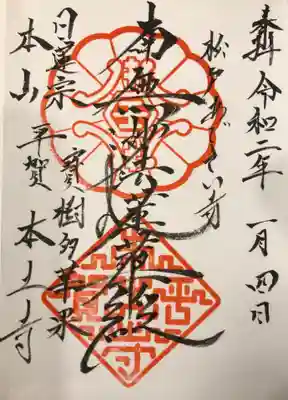 奉拝 令和二年 一月四日
松戸あじさい寺
南無妙法蓮華経
寳樹多華果
日蓮宗
本山 平賀 本土寺